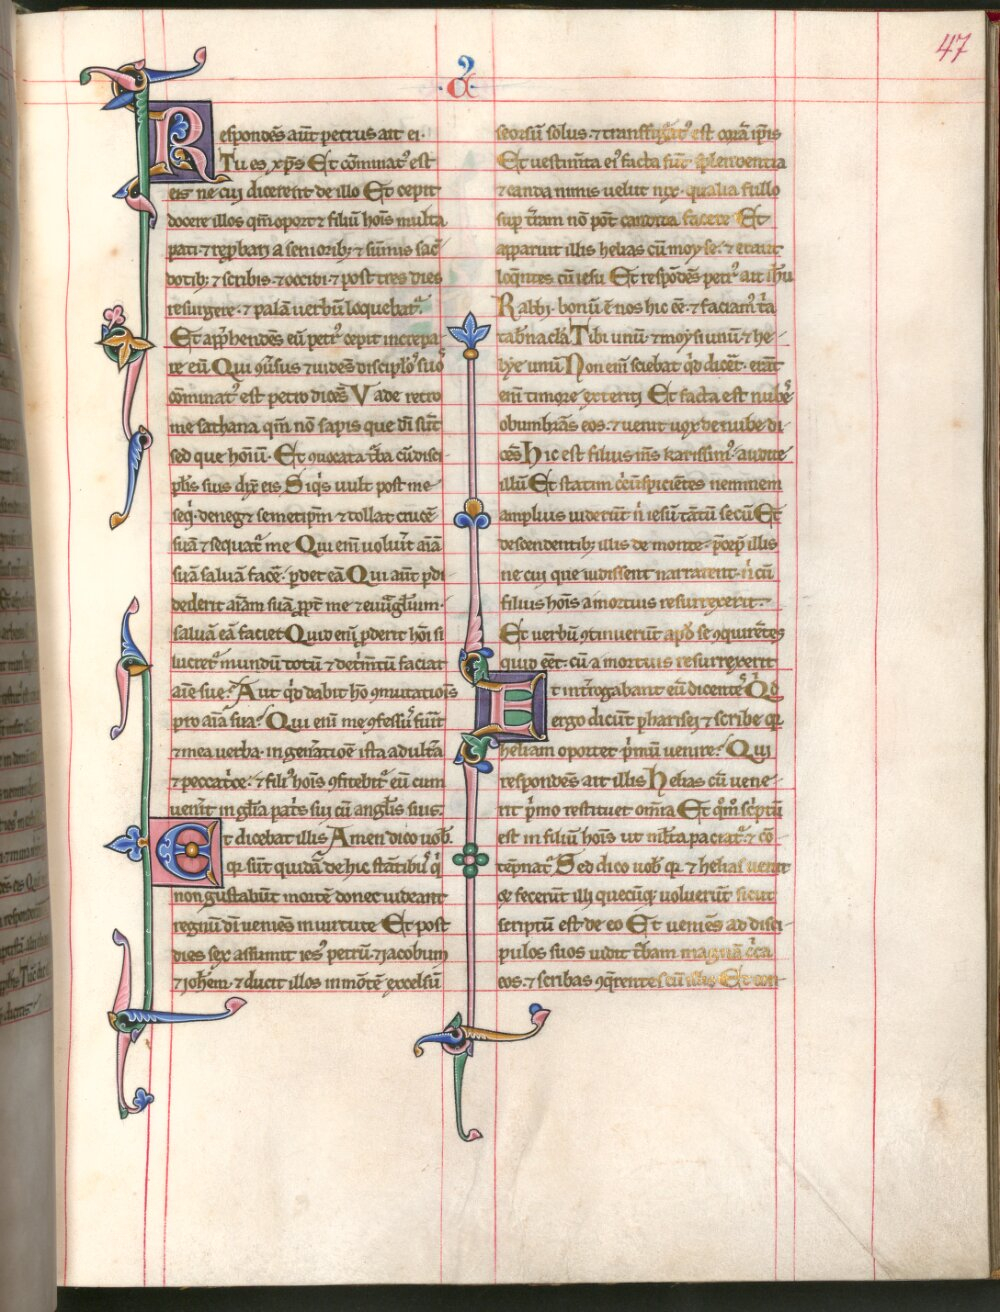 47
Respondēs aūt petrus ait ei.
Tu es xp̄s Et cōminatꝰ est
eis ne cui dicerent de illo Et cepit
docere illos qm̄ oport& filiū hoīs multa
pati ⁊ rep̄bari a seniorib; ⁊ sūmis sac̄
dotib; ⁊ scribis ⁊ occidi ⁊ post tres dies
resurgere ⁊ palā uerbū loquebatᷣ.
Et app̄hendēs eū petrꝰ cepit increpa
re eū Qui ꝯuersus ⁊ uidēs discipl̄os suos
cōminatꝰ est petro dicēs Vade retro
me sathana qm̄ nō sapis que dī sunt
sed que hoīm̄. Et ꝯuocata t̄ba cū disci
pl̄is suis dix̄ eis Siq̇s uult post me
seq̇ deneg& semetip̄m ⁊ tollat crucē
suā ⁊ sequatᷣ me Qui em̄ uolūit aīā
suā saluā facē ꝑdet eā Qui aūt ꝑdi
diderit aīam suā ꝓpt̄ me ⁊ euāgl̄ium
saluā eā faciet Quid em̄ ꝓderit hoī si
lucretᷣ mundū totū ⁊ det̄m̄tū faciat
aīe sue? Aut qͥd dabit hō ꝯmutatiōis
pro aīa sua? Qui em̄ me ꝯfessus fūit
⁊ mea uerba in gen̄atiōe ista adult̄a
⁊ peccat̄ce ⁊ filiꝰ hoīs ꝯfitebitᷣ eū cum
uen̄it in gl̄ia pat̄s sui cū angl̄is suis.
Et dicebat illis Amen dico uob̄
qꝫ sūt quidā de hic stātibꝰ q̇
non gustabūt mortē donec uideant
regnū dī ueniēs in uirtute Et post
dies sex assumit ies̄ petrū ⁊ jacobum
⁊ joh̄em ⁊ ducit illos in mōtē excelsū
seorsū solus ⁊ transfiguratꝰ est corā ip̄is
Et uestim̄ta eiꝰ facta sūt splendentia
⁊ canda nimis uelut nix qualia fullo
sup t̄ram nō pōt candida facere Et
apparuit illis helias cū moyse ⁊ erant
loq̄ntes cū iesu Et respōdēs petrꝰ ait ih̄u
Rabbi bonū ē nos hic ēe ⁊ faciamꝰ t̄a
tab̄nacl̄a Tibi unū ⁊ moysi unū ⁊ he
lye unū Non em̄ sciebat qͥd dicēt erāt
em̄ timore exterriti Et facta est nubes
obumbrās eos ⁊ uenit uox de nube di
cēs Hic est filius m̄s karissimꝰ audite
illū Et statim circūspiciētes neminem
amplius uiderūt n̄ iesū tātū secū Et
descendentib; illis de monte p̄cep̄ illis
ne cui que uidissent narrarent n̄ cū
filius hoīs a mortuis resurrexerit.
Et uerbū ꝯtinuerūt apud se ꝯquirētes
quid ēēt cū a mortuis resurrexerit
Et int̄rogabant eū dicentes Qͥd
ergo dicūt pharisei ⁊ scribe qꝫ
heliam oportet p̄mū uenire? Qui
respondēs ait illis Helias cū uene
rit p̄mo restituet om̄ia Et qͦmͦ sc̄ptū
est in filiū hoīs ut ml̄ta paciatᷣ ⁊ cō
tēpnatᷣ Sed dico uob̄ qꝫ ⁊ helias uenit
& fecerūt illi quecūqꝫ uoluerūt sicut
scriptū est de eo Et ueniēs ad disci
pulos suos uidit t̄bam magnā c̄ca
eos ⁊ scribas ꝯq̄rentes cū illis Et con